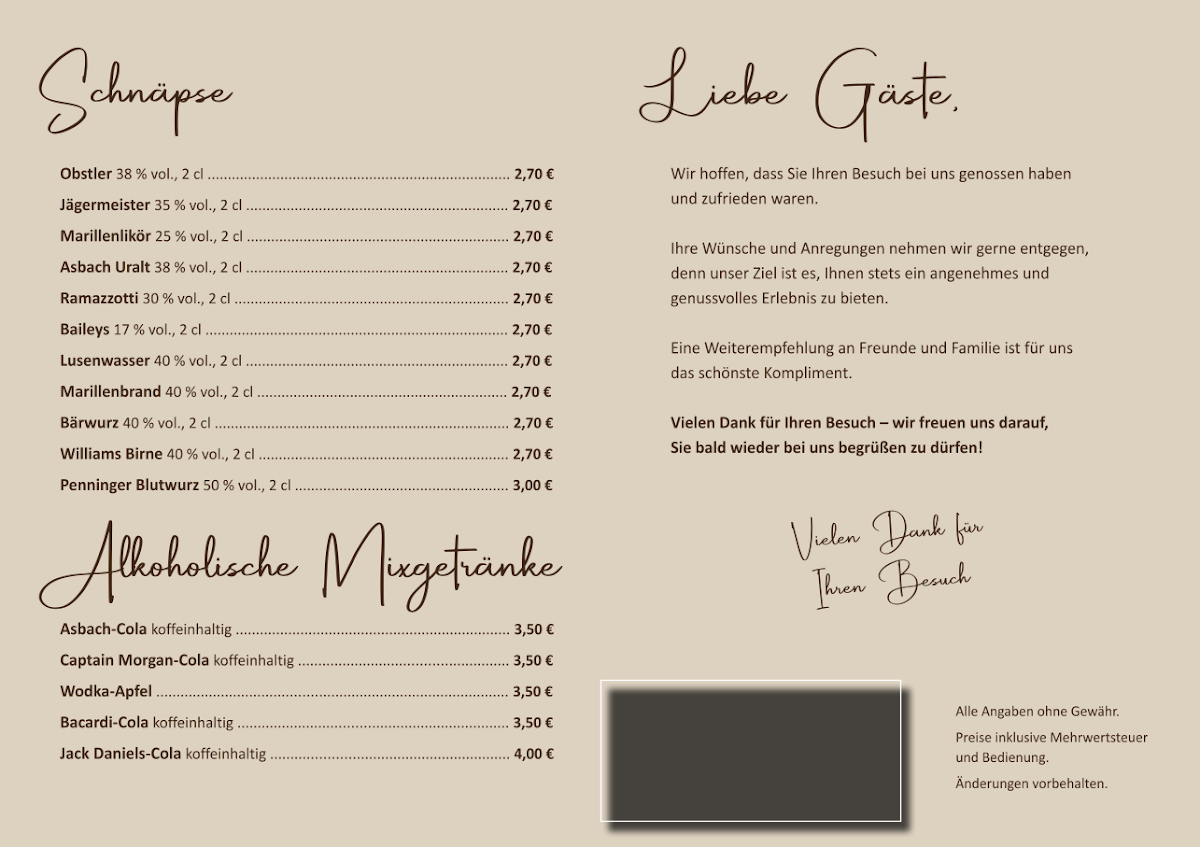 Schnäpse
Obstler 38 % vol., 2 cl ........................................................................... 2,70 €
Jägermeister 35 % vol., 2 cl ................................................................. 2,70 €
Marillenlikör 25 % vol., 2 cl ................................................................. 2,70 €
Asbach Uralt 38 % vol., 2 cl ................................................................. 2,70 €
Ramazzotti 30 % vol., 2 cl .................................................................... 2,70 €
Baileys 17 % vol., 2 cl ........................................................................... 2,70 €
Lusenwasser 40 % vol., 2 cl ................................................................. 2,70 €
Marillenbrand 40 % vol., 2 cl .............................................................. 2,70 €
Bärwurz 40 % vol., 2 cl ......................................................................... 2,70 €
Williams Birne 40 % vol., 2 cl .............................................................. 2,70 €
Penninger Blutwurz 50 % vol., 2 cl ..................................................... 3,00 €
Alkoholische Mixgetränke
Asbach-Cola koffeinhaltig .................................................................... 3,50 €
Captain Morgan-Cola koffeinhaltig .................................................... 3,50 €
Wodka-Apfel ........................................................................................ 3,50 €
Bacardi-Cola koffeinhaltig .................................................................... 3,50 €
Jack Daniels-Cola koffeinhaltig ........................................................... 4,00 €
Liebe Gäste,
Wir hoffen, dass Sie Ihren Besuch bei uns genossen haben
und zufrieden waren.
Ihre Wünsche und Anregungen nehmen wir gerne entgegen,
denn unser Ziel ist es, Ihnen stets ein angenehmes und
genussvolles Erlebnis zu bieten.
Eine Weiterempfehlung an Freunde und Familie ist für uns
das schönste Kompliment.
Vielen Dank für Ihren Besuch – wir freuen uns darauf,
Sie bald wieder bei uns begrüßen zu dürfen!
Vielen Dank für
Ihren Besuch
Alle Angaben ohne Gewähr.
Preise inklusive Mehrwertsteuer
und Bedienung.
Änderungen vorbehalten.